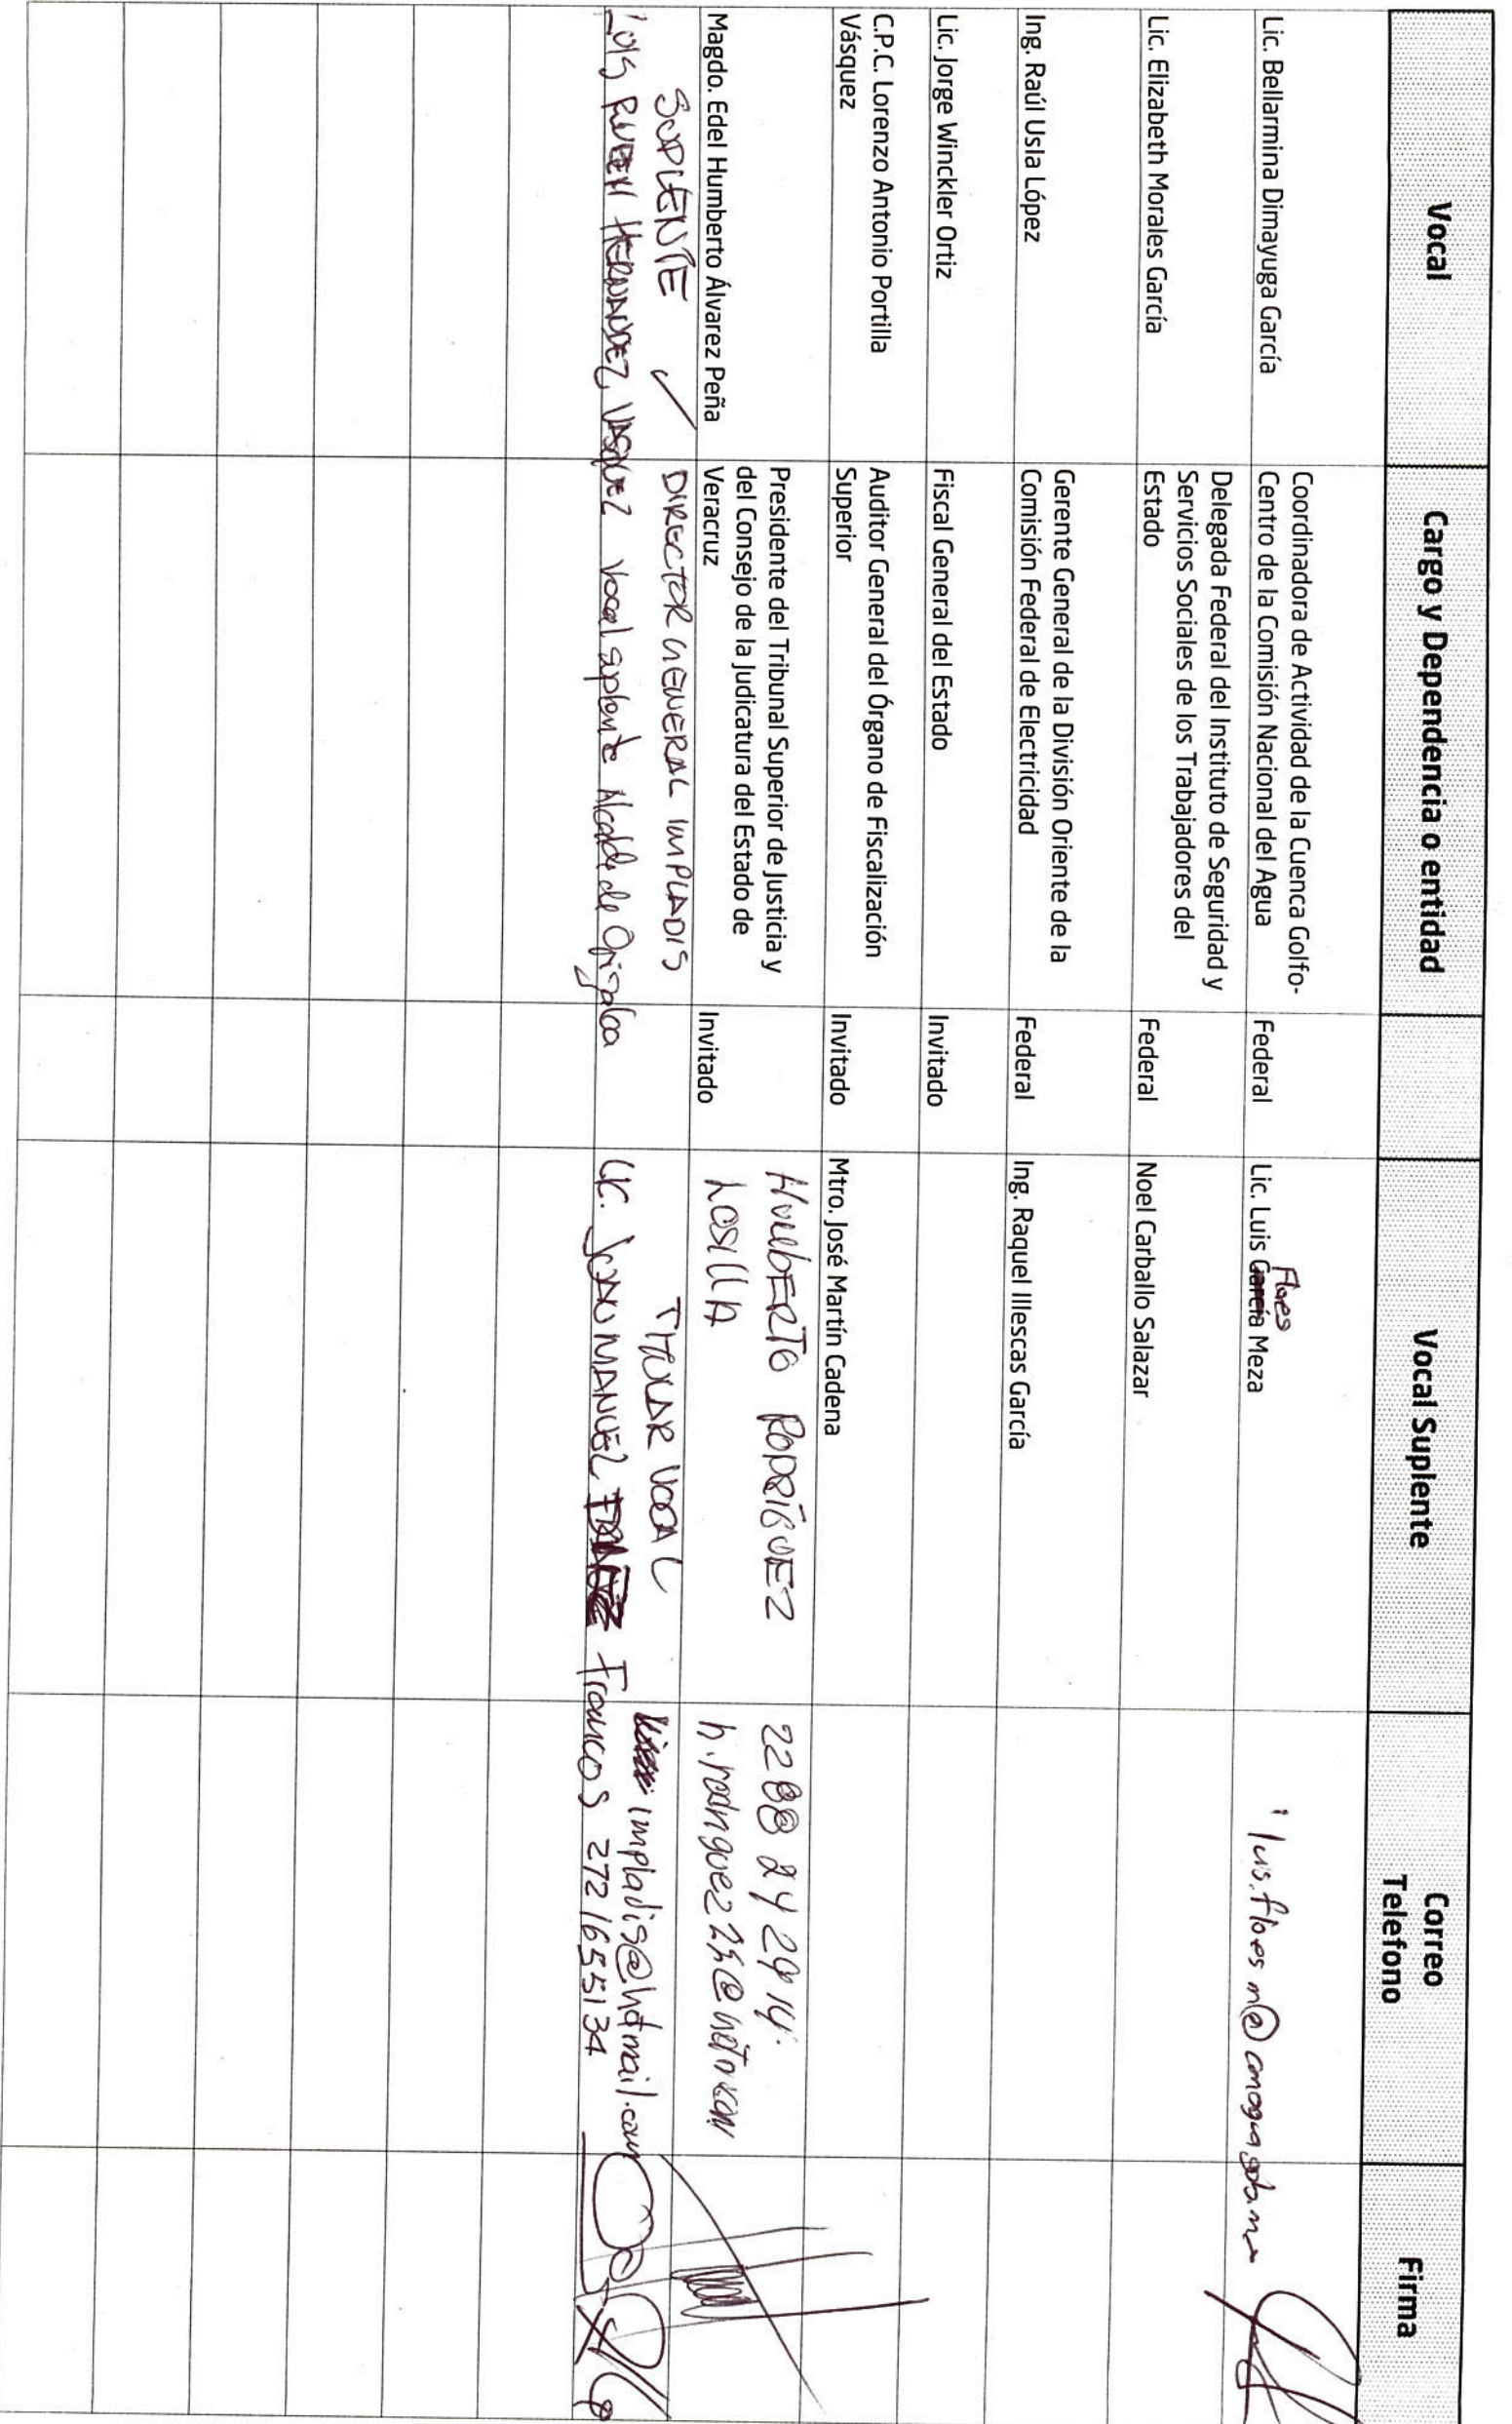 Vocal
Cargo y Dependencia o entidad
Vocal Suplente
Correo
Telefono
Firma
Lic. Bellarmina Dimayuga García
Coordinadora de Actividad de la Cuenca Golfo-
Centro de la Comisión Nacional del Agua
Federal
Flores
Lic. Luis García Meza
luis.flores m@conagua.gob.mx
Lic. Elizabeth Morales García
Delegada Federal del Instituto de Seguridad y
Servicios Sociales de los Trabajadores del
Estado
Federal
Noel Carballo Salazar
Ing. Raúl Usla López
Gerente General de la División Oriente de la
Comisión Federal de Electricidad
Federal
Ing. Raquel Illescas García
Lic. Jorge Winckler Ortiz
Fiscal General del Estado
Invitado
C.P.C. Lorenzo Antonio Portilla
Vásquez
Auditor General del Órgano de Fiscalización
Superior
Invitado
Mtro. José Martín Cadena
Magdo. Edel Humberto Álvarez Peña
Presidente del Tribunal Superior de Justicia y
del Consejo de la Judicatura del Estado de
Veracruz
Invitado
HumbERTO RODRÍGUEZ
LOSILLA
2288 24 29 14.
SUPLENTE ✓
DIRECTOR GENERAL IMPLADIS
TITULAR VOCAL
impladis@hotmail.com
LUIS RUBEN HERNANDEZ VASQUEZ
Vocal suplente Alcalde de Orizaba
LIC. JUAN MANUEL Francos
272 1655134